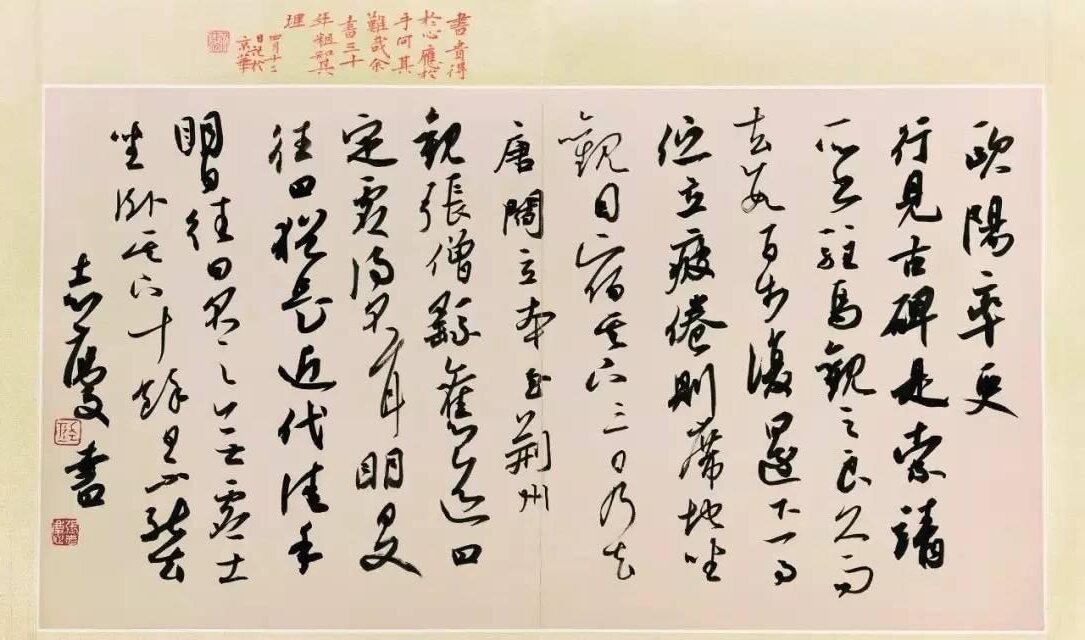 書貴得
於心應於
手何其
難哉余
書三十
年粗知其
理
四月十二
日記於
京華
歐陽率更
行見古碑是索靖
所書駐馬觀之良久而
去數百步復還下馬
佇立疲倦則席地坐
觀因宿其下三日乃去
唐閻立本至荊州
觀張僧繇舊迹曰
定虛得名耳明日又
往曰猶是近代佳手
明日往曰名下無虛士
坐臥其下十餘日不能去
志慶書